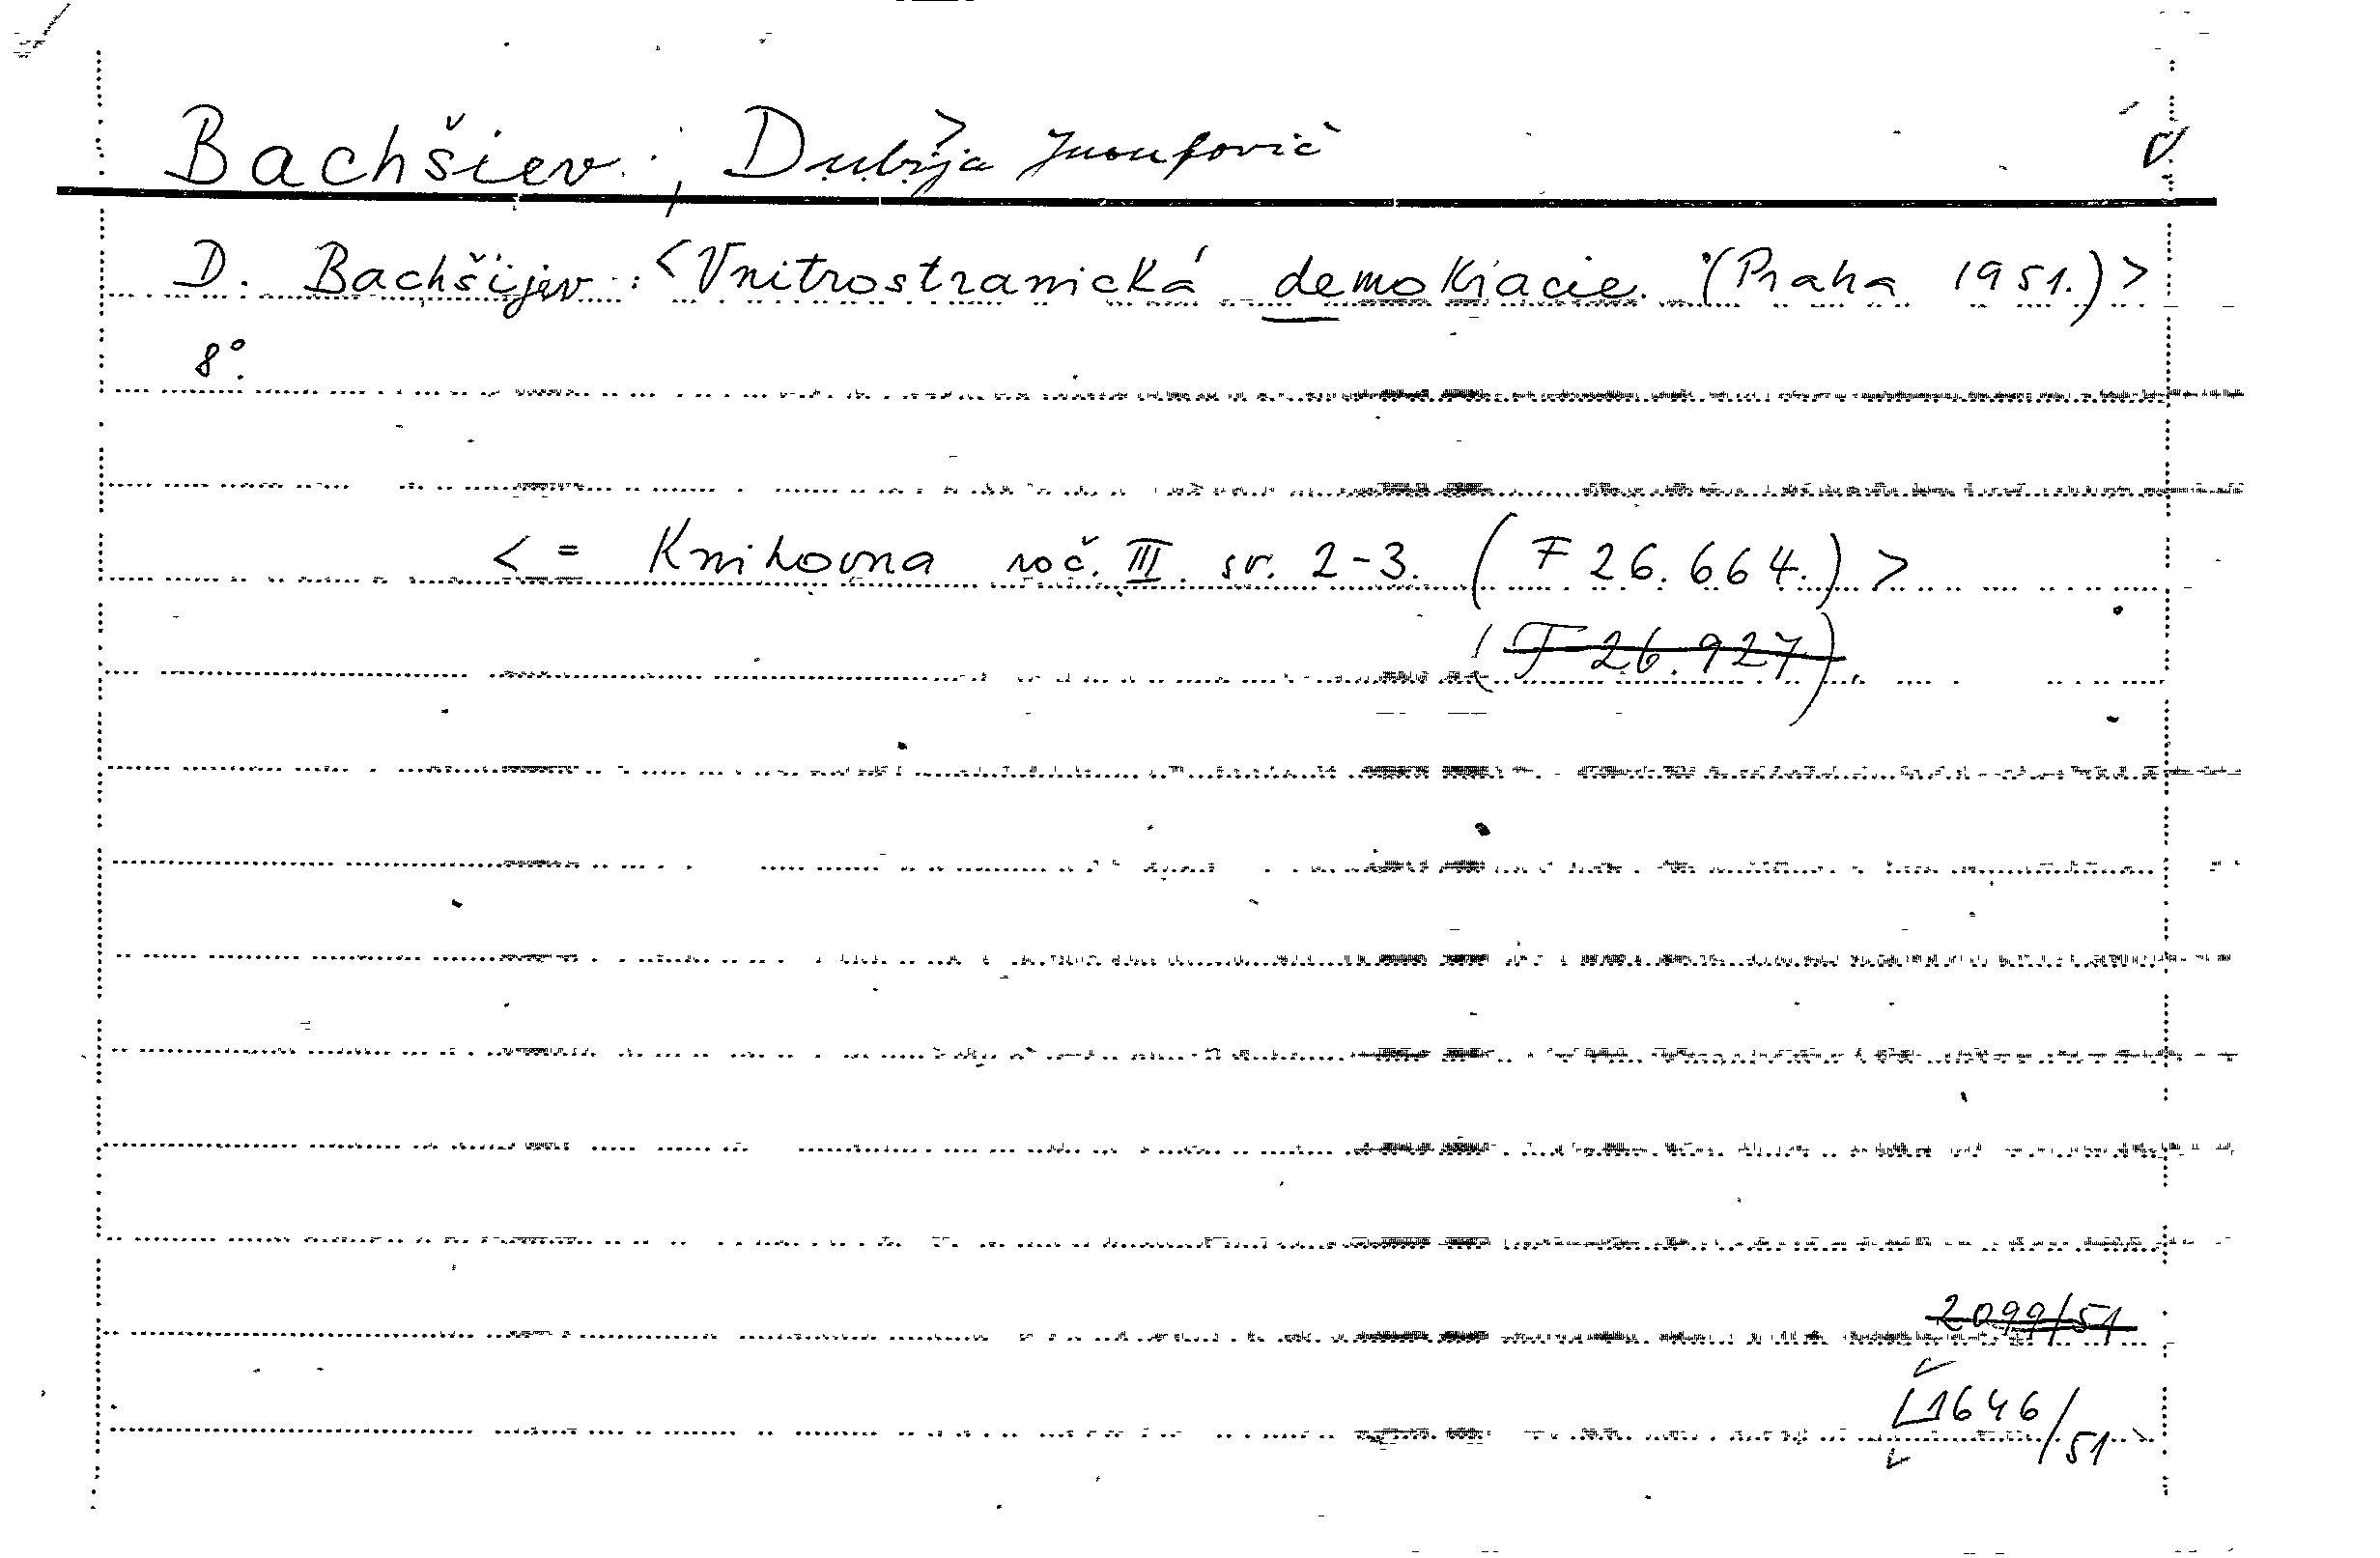 Bachšiev, Dubija Jusufovič
D. Bachšijev: <Vnitrostranická demokracie. (Praha 1951.)>
8°.
<= Knihovna roč. III. sv. 2-3. (F 26.664.)>
(F 26.927).
2099/51
L1646/51